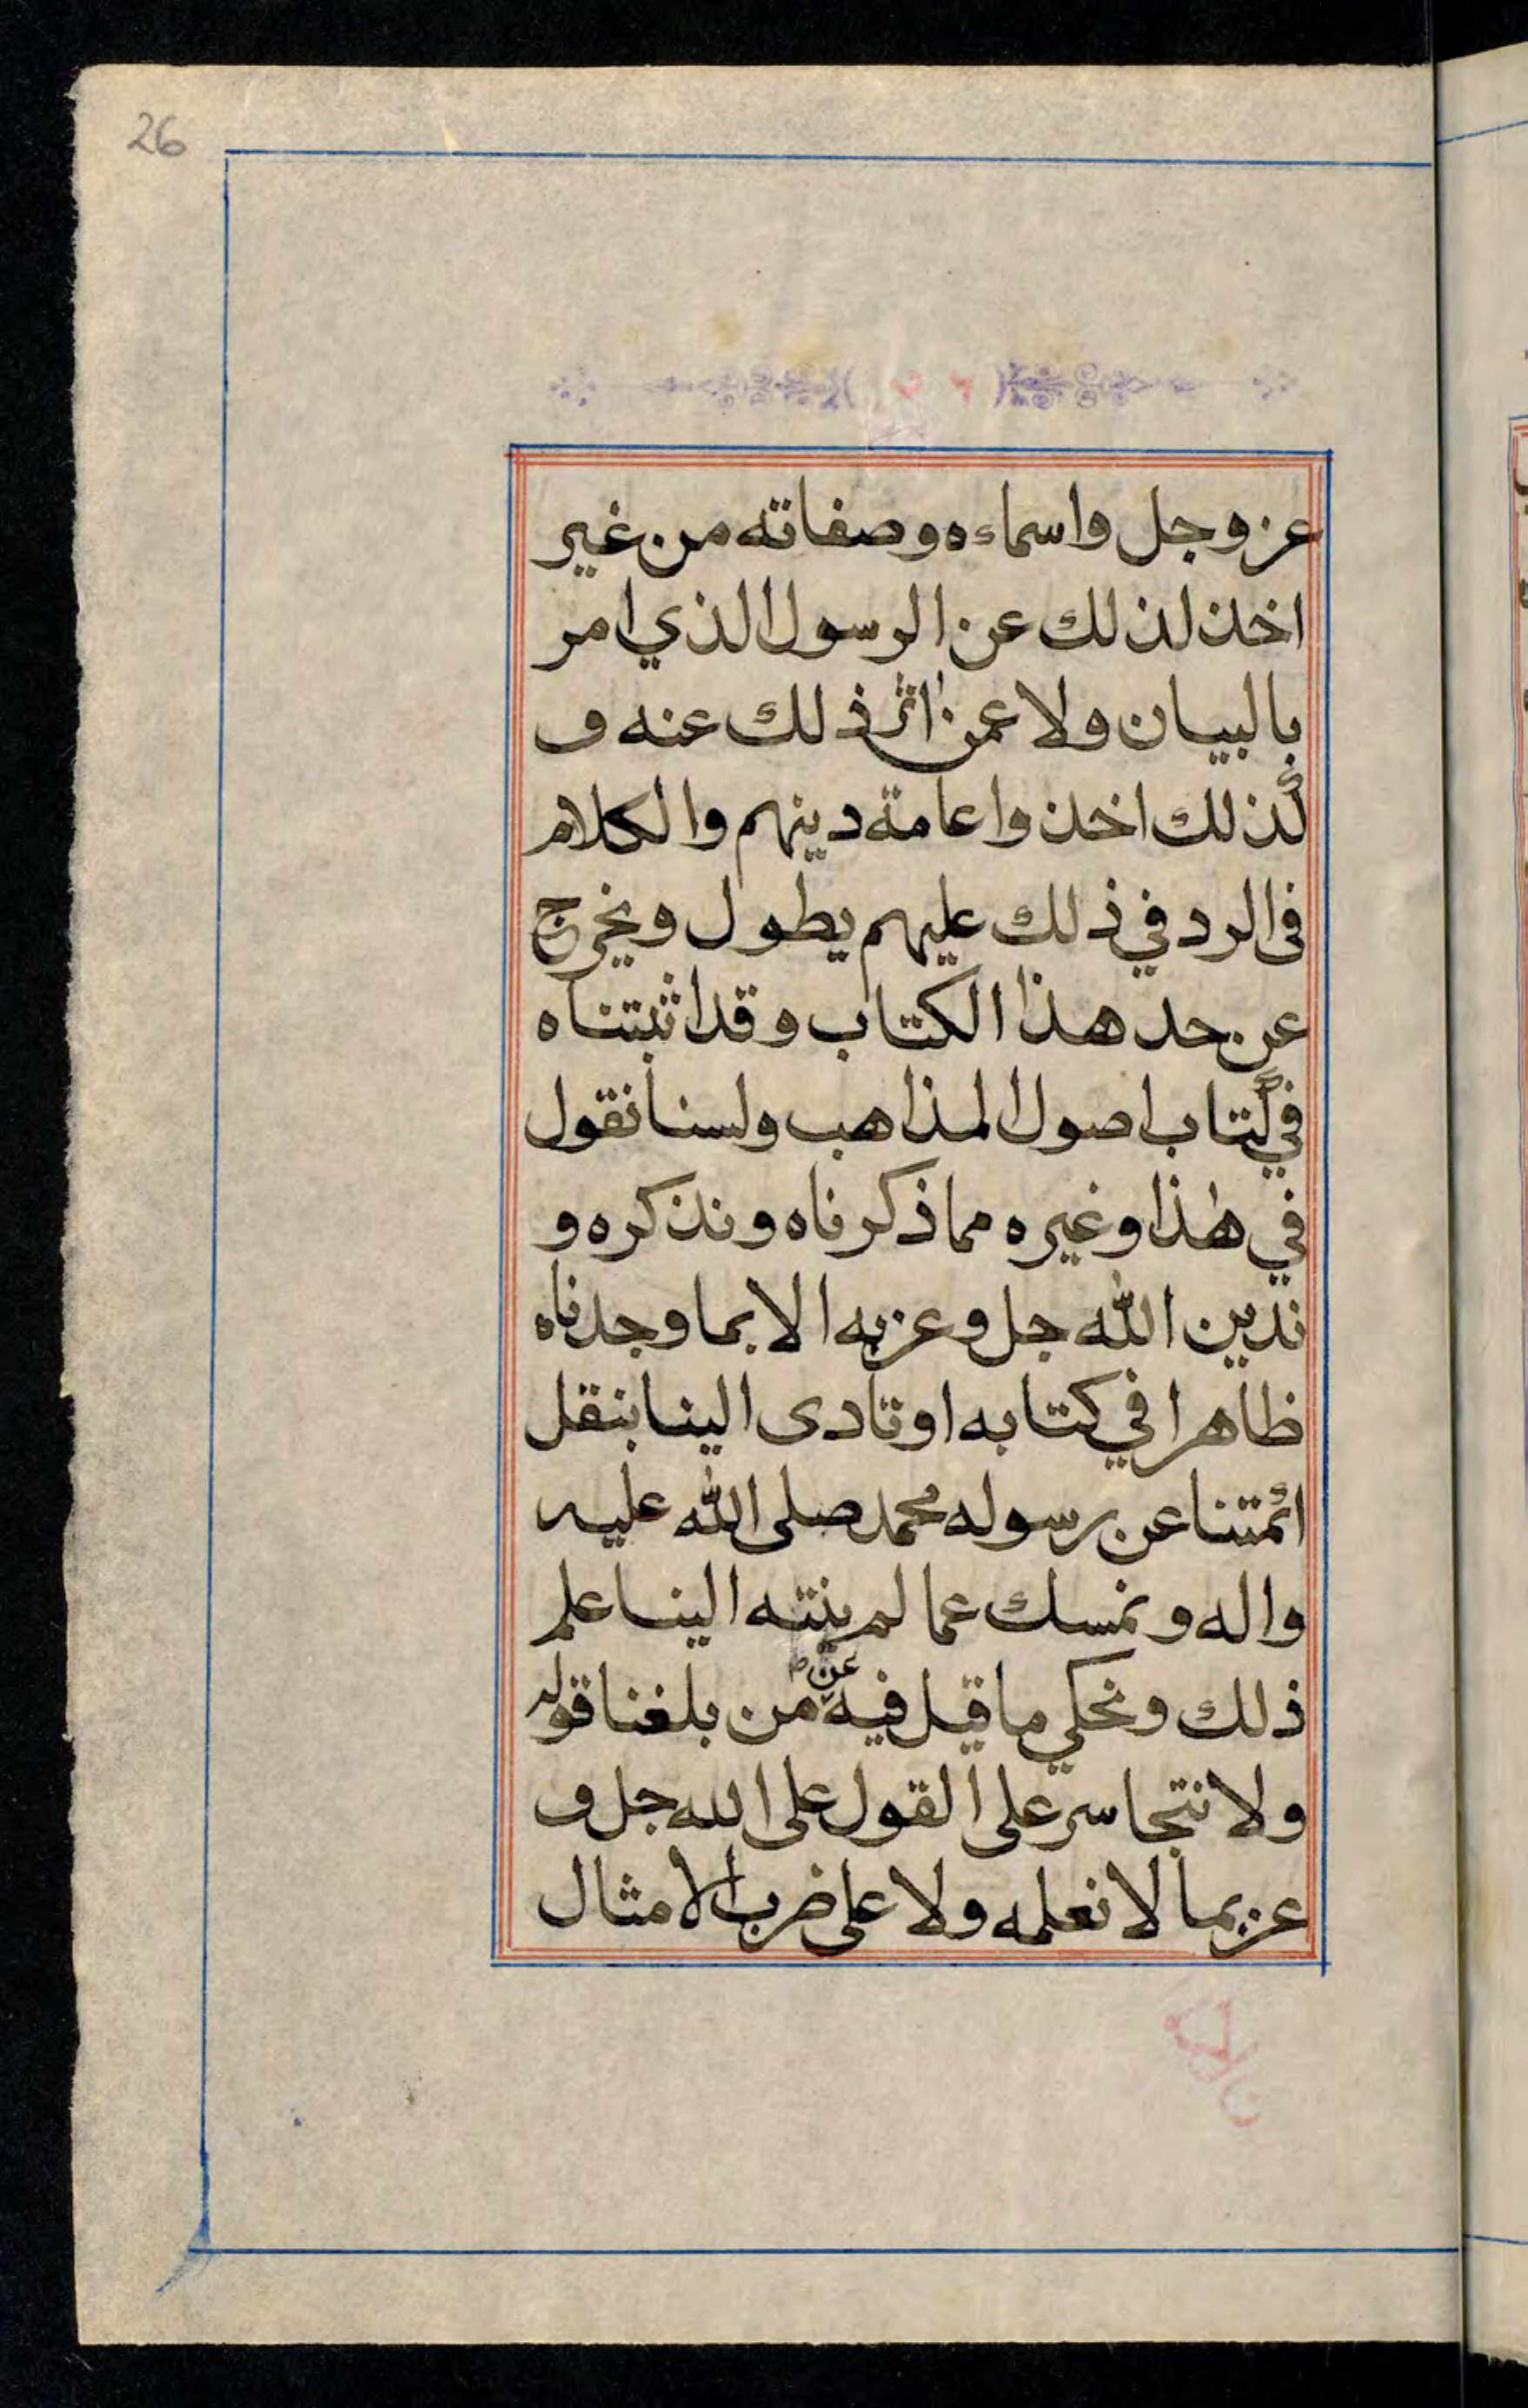 26
عز وجل واسماءه وصفاته من غير
اخذ لذلك عن الرسول الذي امر
بالبيان ولا عمن اثر ذلك عنه و
كذلك اخذوا عامة دينهم والكلام
فى الرد في ذلك عليهم يطول ويخرج
عن حد هذا الكتاب وقد اثبتناه
في كتاب اصول المذاهب ولسنا نقول
في هذا وغيره مما ذكرناه ونذكره و
ندين الله جل وعز به الا بما وجدناه
ظاهرا في كتابه او تادى الينا بنقل
ائمتنا عن رسوله محمد صلى الله عليه
واله ونمسك عما لم ينته الينا علم
ذلك ونحكي ما قيل فيه عن من بلغنا قوله
ولا نتجاسر على القول على الله جل و
عز بما لا نعلمه ولا على ضرب الامثال